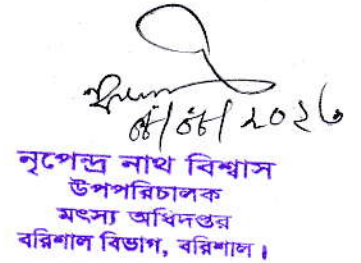 নৃপেন্দ্র নাথ বিশ্বাস
উপপরিচালক
মৎস্য অধিদপ্তর
বরিশাল বিভাগ, বরিশাল।